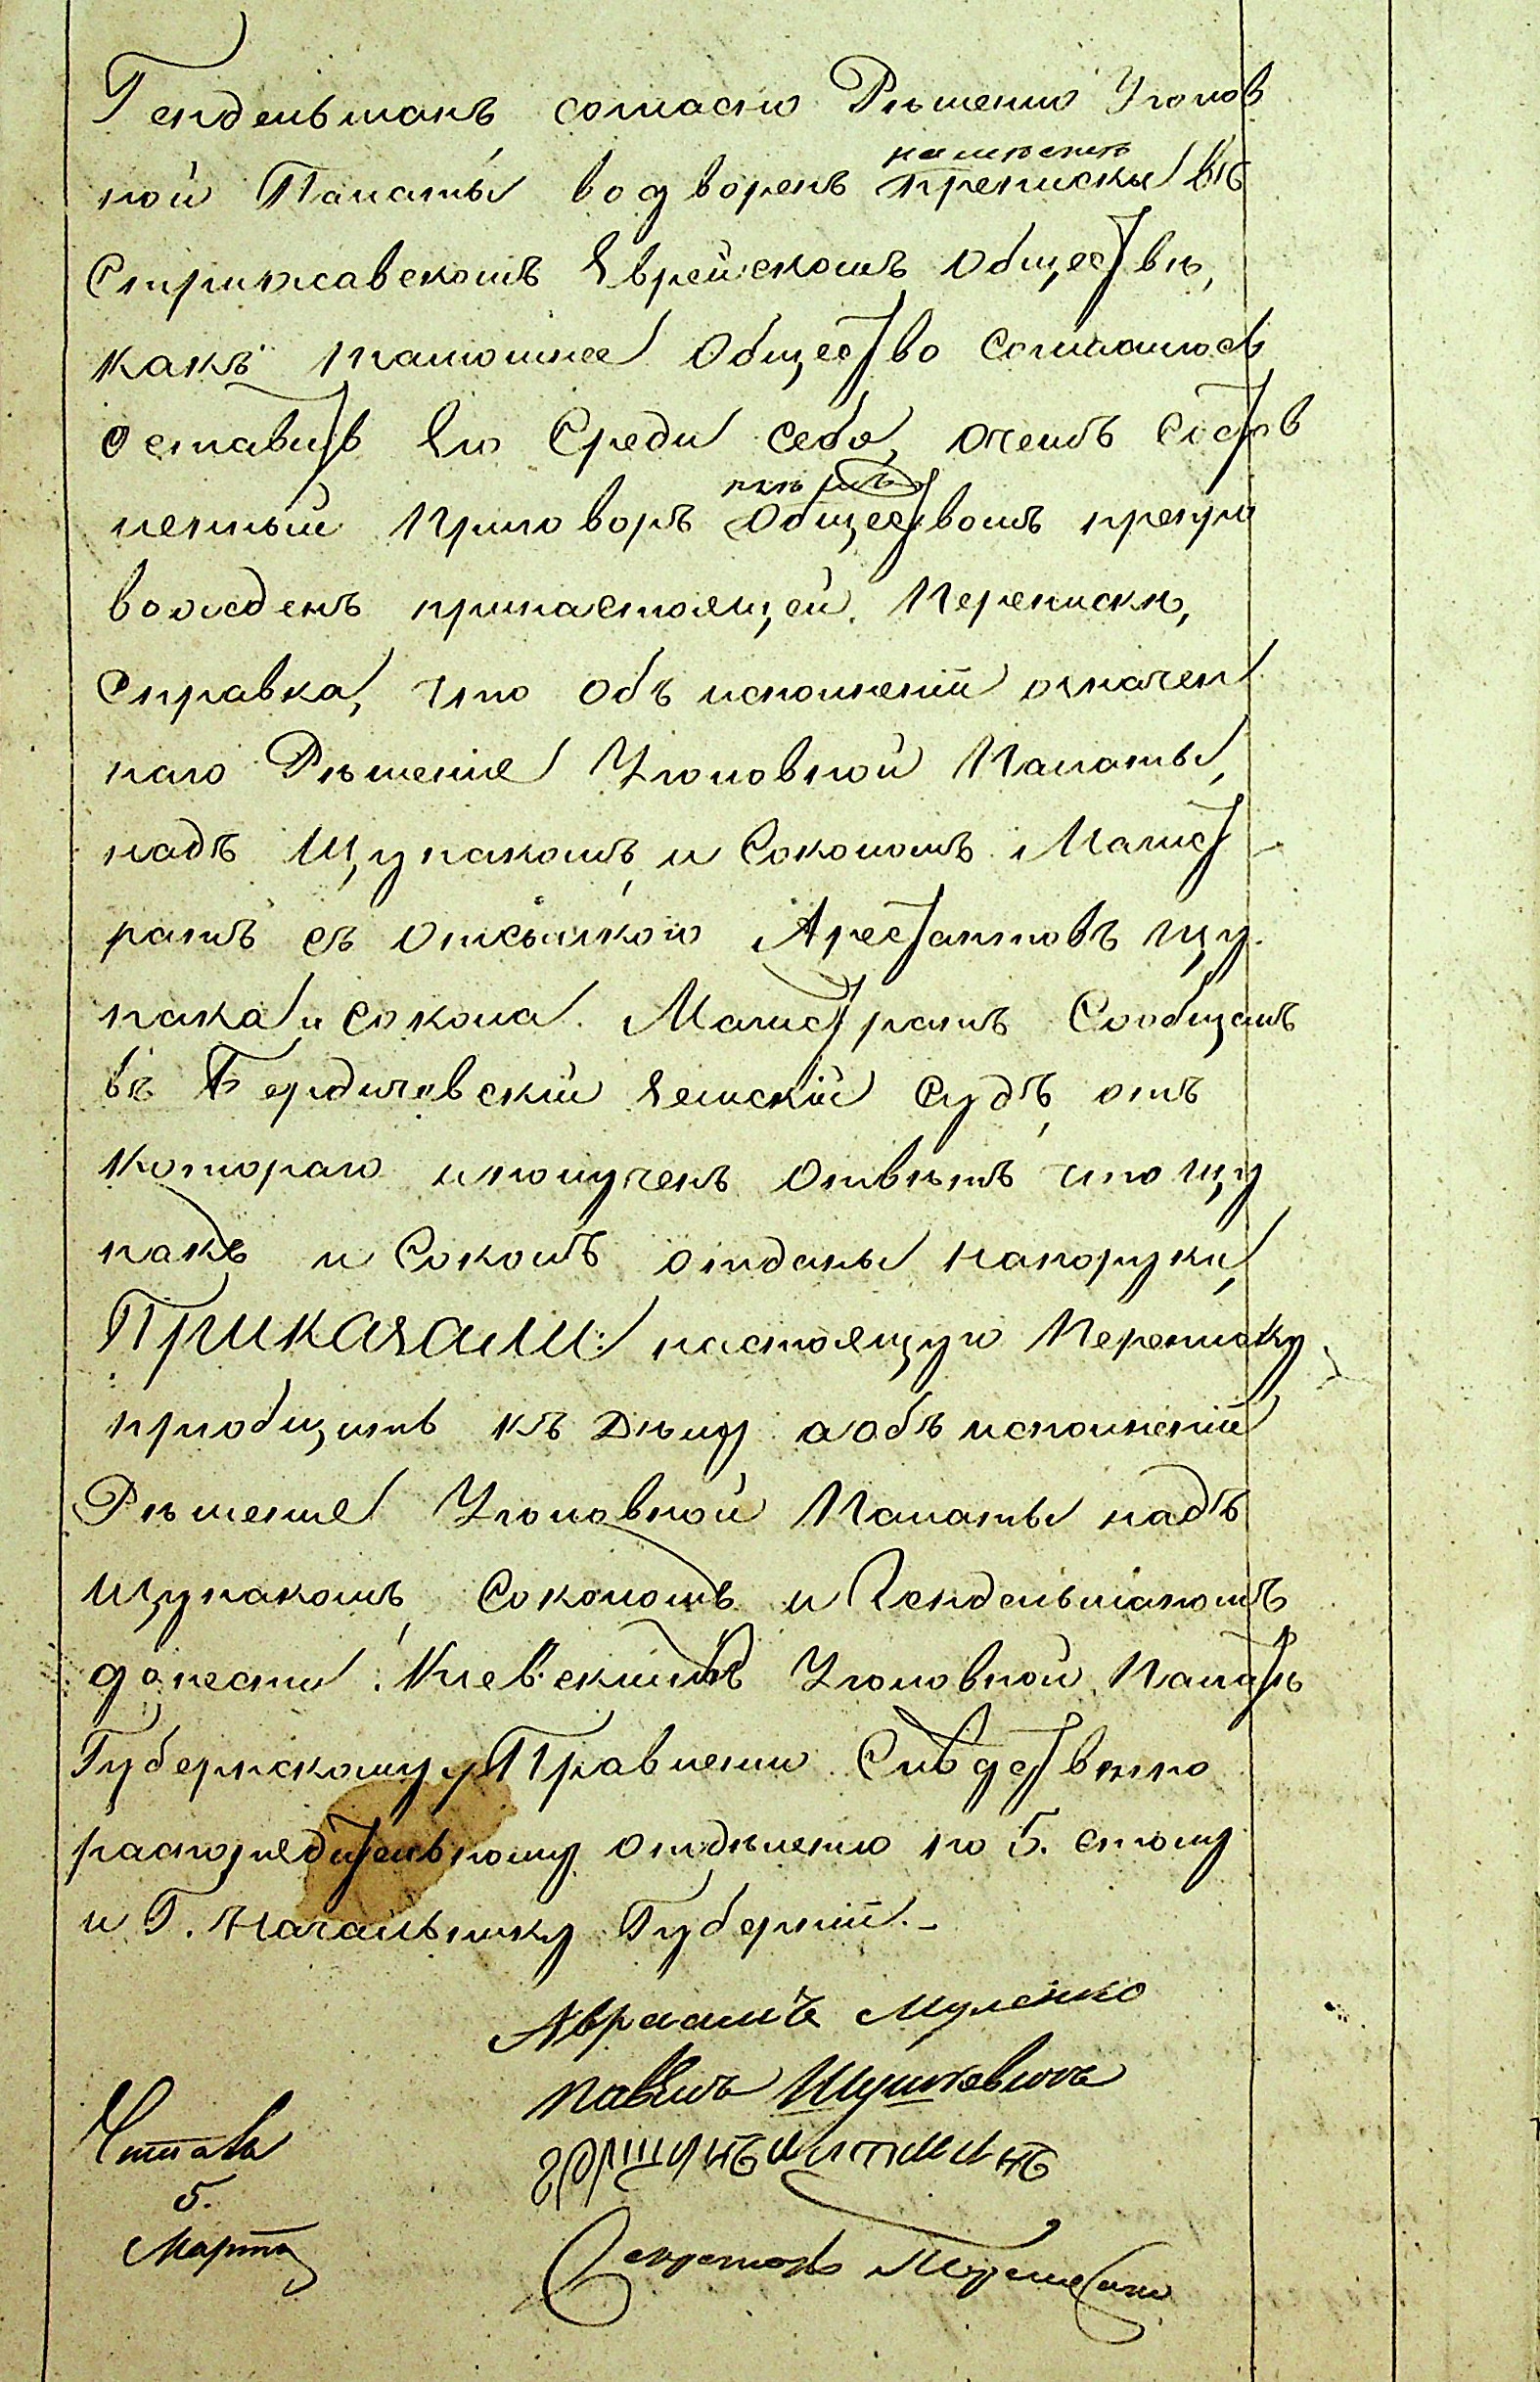 Гендельманъ согласно Рѣшенію Уголов
ной Палаты водворенъ на мѣстѣ приписки въ
Стрижавскомъ Еврейскомъ Обществѣ,
какъ тамошнее Общество согласилось
оставить Его Среди себя, о чемъ состав
ленный приговоръ Обществомъ препро
вожденъ при настоящей Перепискѣ,
Справка, что объ исполненіи означен
наго Рѣшеніе Уголовной Палаты,
надъ Щупакомъ и Соколомъ Магист
ратъ съ отсылкою Арестантовъ Щу
пака и Сокола. Магистратъ Сообщалъ
въ Бердичевскій Земскій Судъ, отъ
котораго и полученъ Отвѣтъ что Щу
пакъ и Соколъ отданы на поруки,
Приказали: настоящую Переписку
пріобщить къ Дѣлу а объ исполненіи
Рѣшеніе Уголовной Палаты надъ
Щупакомъ, Соколомъ и Гендельманомъ
донести Кіевской Уголовной Палатѣ
Губернскому Правленію Слѣдственно
распорядительному отдѣленію по 5. столу
и Г. Начальнику Губерніи.
Авраамъ
Павелъ
Читалъ
5.
Марта
Секретарь